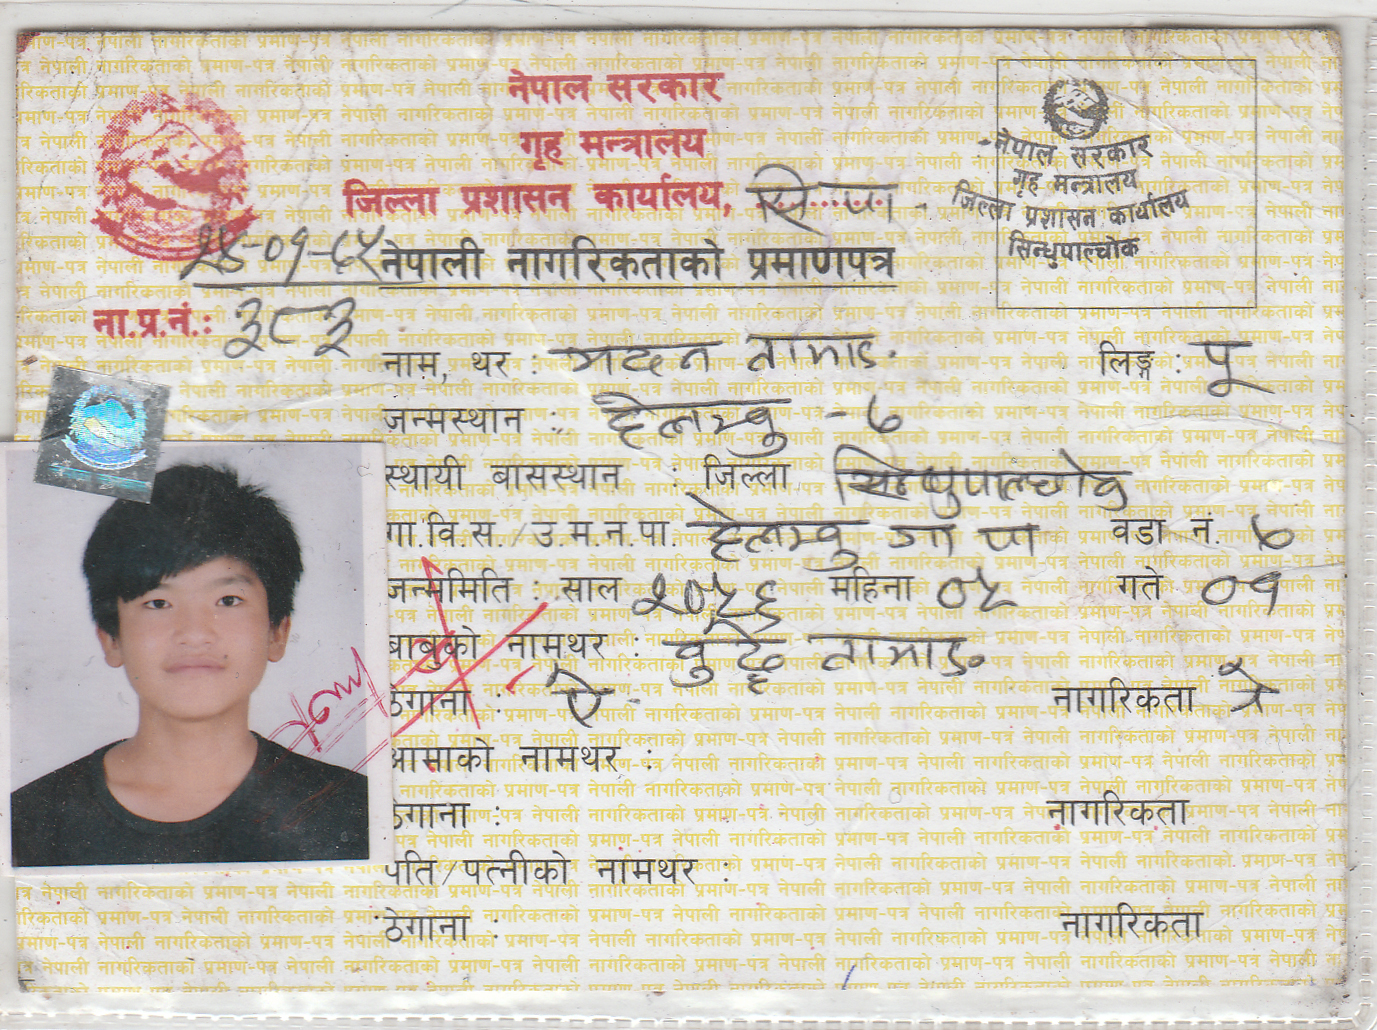 नेपाल सरकार
गृह मन्त्रालय
जिल्ला प्रशासन कार्यालय, सि.पा.
नेपाल सरकार
गृह मन्त्रालय
जिल्ला प्रशासन कार्यालय
सिन्धुपाल्चोक
नेपाली नागरिकताको प्रमाणपत्र
ना.प्र.नं.: ३८३
नाम, थर : मदन तामाङ लिङ्ग : पू
जन्मस्थान : हेलम्बु - ७
स्थायी बासस्थान : जिल्ला सिन्धुपाल्चोक
गा.वि.स./उ.म.न.पा. हेलम्बु गा पा वडा नं. ७
जन्ममिति : साल २०५६ महिना ०५ गते ०१
बाबुको नामथर : तामाङ
ठेगाना : ऐ नागरिकता
आमाको नामथर :
ठेगाना : नागरिकता
पति/पत्नीको नामथर :
ठेगाना : नागरिकता